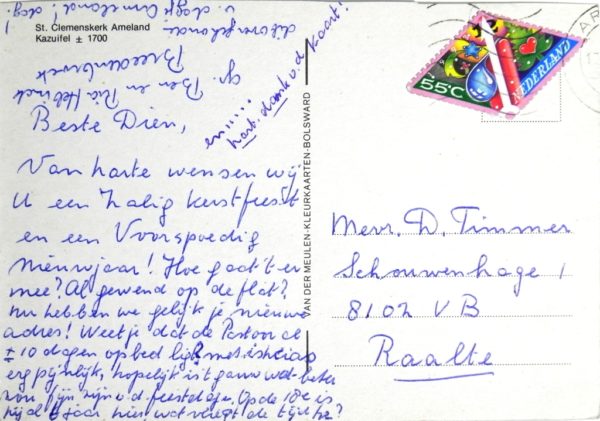 St. Clemenskerk Ameland
Kazuifel ± 1700
Beste Dien,
Van harte wensen wij
U een Zalig kerstfeest
en een Voorspoedig
Nieuwjaar! Hoe gaat 't er
mee? Al gewend op de flat?
Nu hebben we gelijk je nieuwe
adres! Weet je dat de Pastoor al
± 10 dagen op bed ligt? met ischias
erg pijnlijk, hopelijk is 't gauw wat beter
zou fijn zijn v.d. feestdagen. Op de 18e is
hij al jaar hier, wat vliegt de tijd hè?
gr. Ben en Ria
Breedenbroek
v. dagje Ameland! dag!
en.....
hart. dank v.d. kaart!
VAN DER MEULEN-KLEURKAARTEN-BOLSWARD
55 C
NEDERLAND
Mevr. D. Timmer
Schouwenhage 1
8102 VB
Raalte